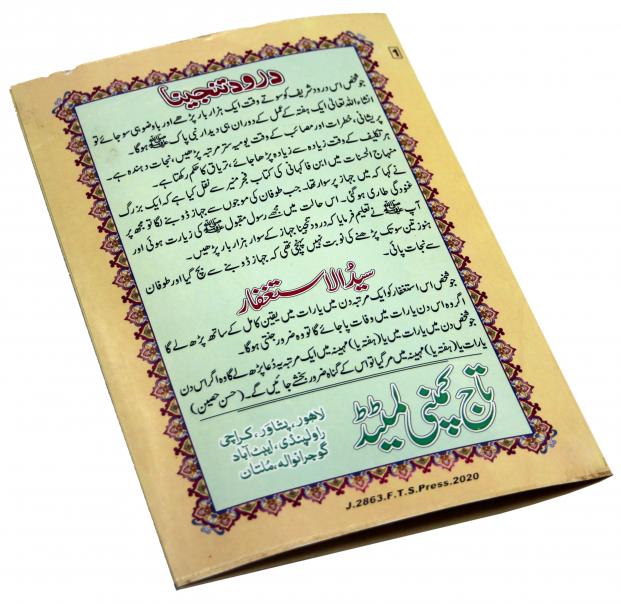 1
درود تنجینا
جو شخص اس درود شریف کو سوتے وقت ایک ہزار بار پڑھے اور باوضو ہی سو جائے تو
انشاء اللہ تعالیٰ ایک ہفتہ کے عمل کے دوران ہی دیدار نبی پاک ﷺ ہوگا۔
پریشانی، خطرات اور مصائب کے وقت یومیہ ستر مرتبہ پڑھیں، نجات دہندہ ہے۔
ہر تکلیف کے وقت زیادہ سے زیادہ پڑھا جائے، تریاق کا حکم رکھتا ہے۔
منہاج الحسنات میں ابن فاکہانی کی کتاب فجر منیر سے نقل کیا ہے کہ ایک بزرگ
نے کہا کہ میں جہاز پر سوار تھا۔ جب طوفان کی موجوں سے جہاز ڈوبنے لگا تو مجھ پر
غنودگی طاری ہو گئی۔ اس حالت میں مجھے رسول مقبول ﷺ کی زیارت ہوئی اور
آپ ﷺ نے تعلیم فرمایا کہ درود تنجینا جہاز کے سوار ہزار بار پڑھیں۔
ہنوز تین سو تک پڑھنے کی نوبت نہیں پہنچی تھی کہ جہاز ڈوبنے سے بچ گیا اور طوفان
سے نجات پائی۔
سیدُ الاستغفار
جو شخص اس استغفار کو ایک مرتبہ دن میں یا رات میں یقین کامل کے ساتھ پڑھ لے گا
اگر وہ اس دن یا رات میں وفات پا جائے گا تو وہ ضرور جنتی ہوگا۔
جو شخص دن میں یا رات میں یا (ہفتہ یا) مہینہ میں ایک مرتبہ یہ دُعا پڑھ لے گا وہ اگر اس دن
یا رات یا (ہفتہ یا) مہینہ میں مر گیا تو اس کے گناہ ضرور بخشے جائیں گے۔ (حسن حصین)
تاج کمپنی لمیٹڈ
لاهور، پشاور، کراچی
راولپنڈی، ایبٹ آباد
گوجرانوالہ، ملتان
J.2863.F.T.S.Press.2020